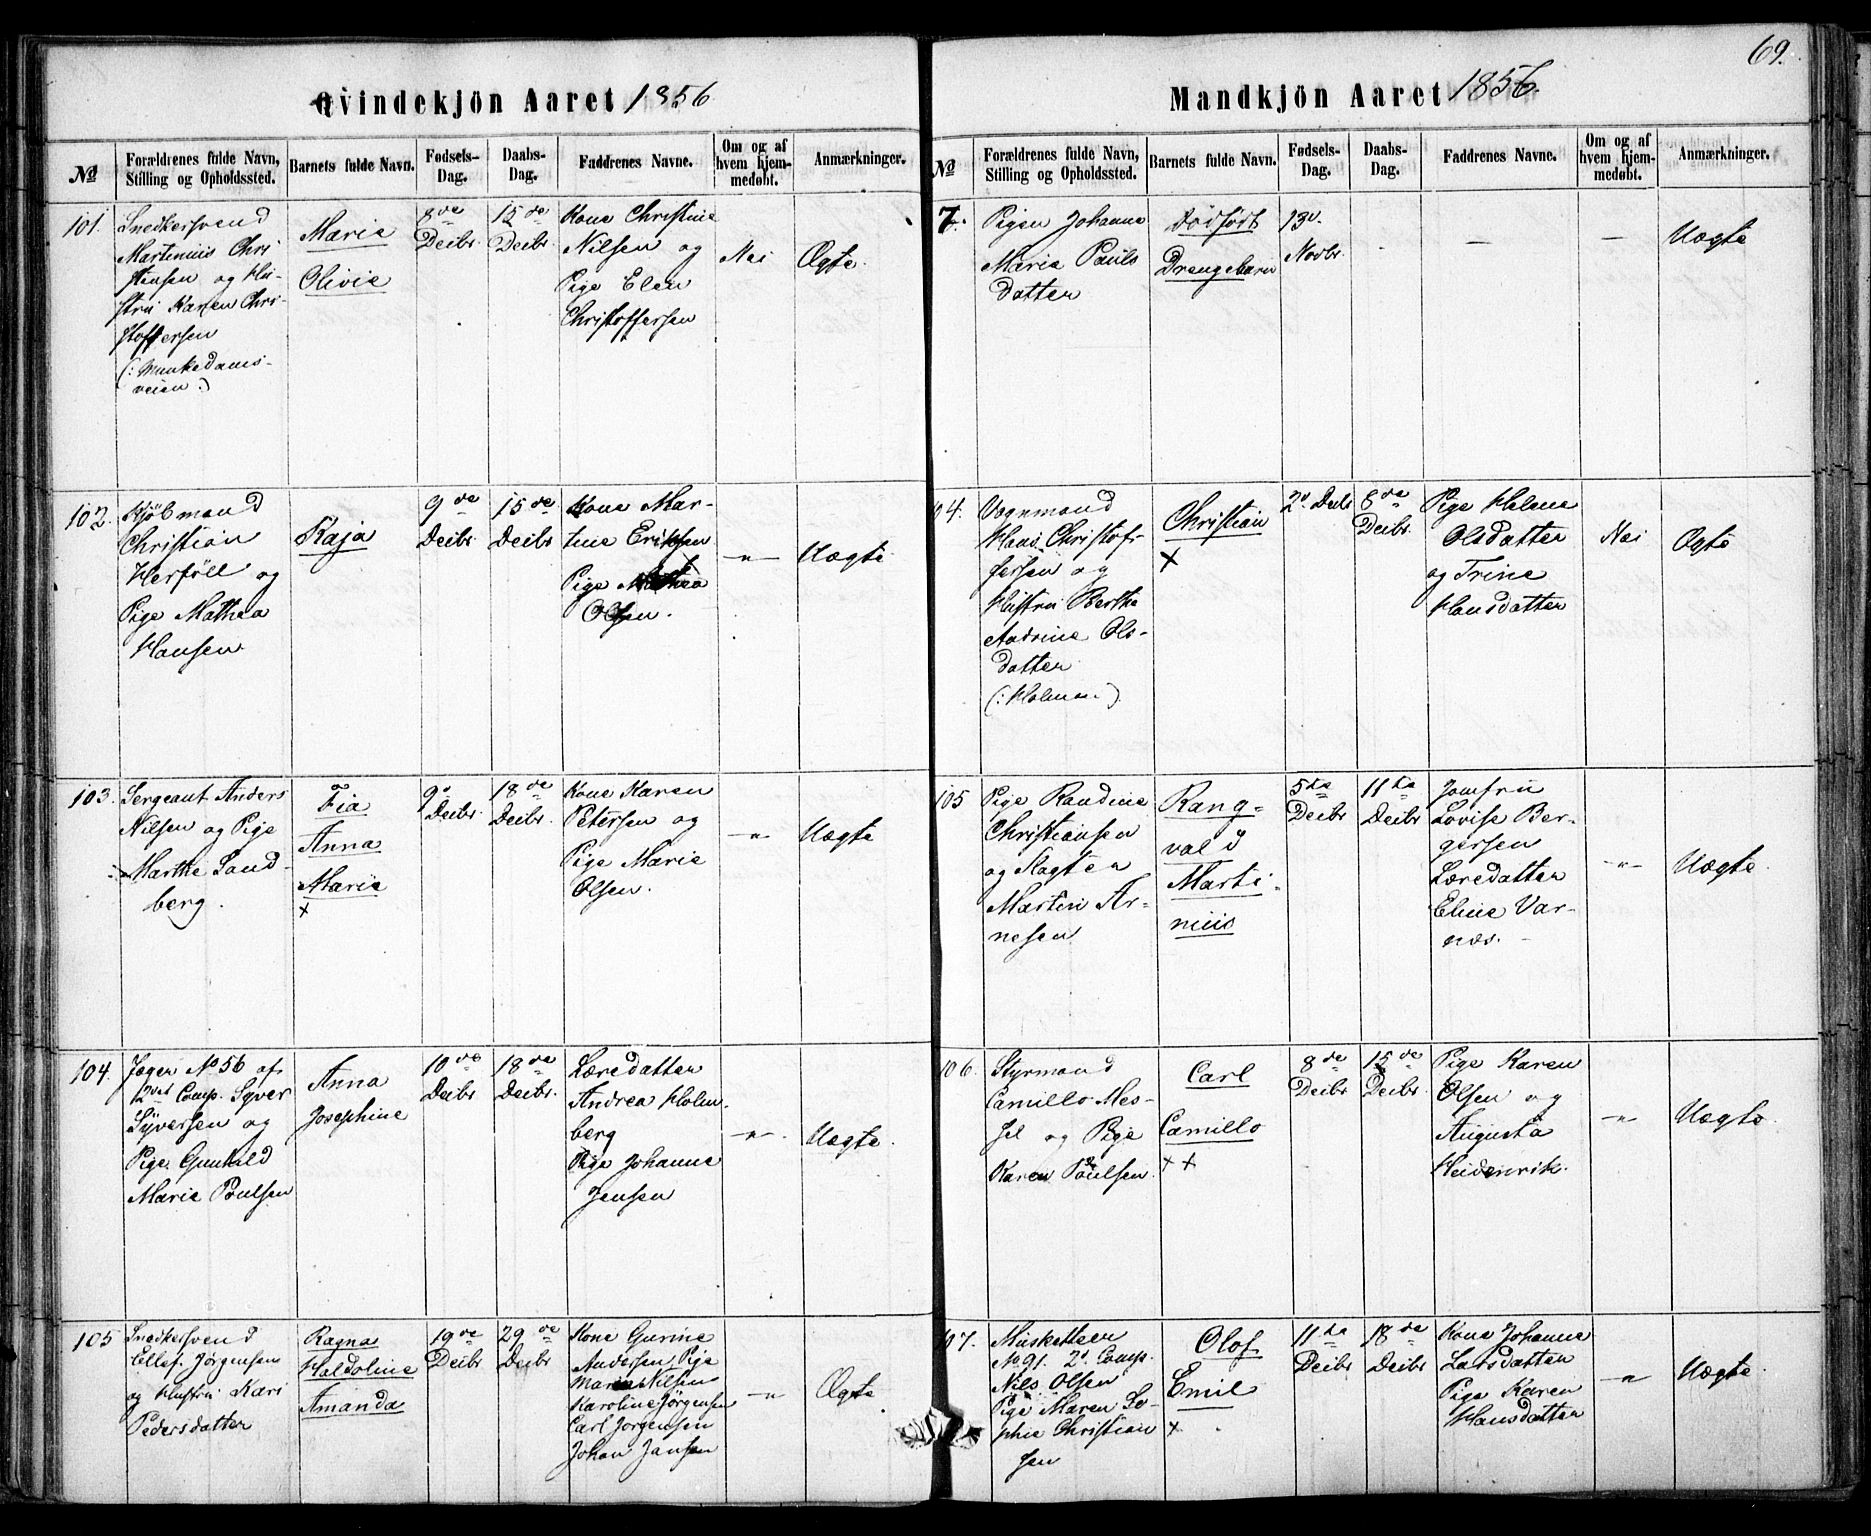 Qvindekjön Aaret 1856
№
Forældrenes fulde Navn,
Stilling og Opholdssted.
Barnets fulde Navn.
Fødsels-
Dag.
Daabs-
Dag.
Faddrenes Navne.
Om og af
hvem hjem-
medøbt.
Anmærkninger.
101.
Snedkersvend
Martinius Chri
stensen og Hu-
stru Karen Chri-
stoffersen
(: Munkedams-
veien :)
Marie
Olivie
8de
Decbr
15de
Decbr.
Kone Christine
Nilsen og
Pige Elen
Christoffersen
Nei
Ægte.
102.
Kjöbmand
Christian
Herföll og
Pige Mathea
Hansen
Kaja
9de
Decbr.
15de
Decbr
Kone Mar-
tine Eriksen
Pige Mathea
Olsen.
–„–
Uægte
103.
Sergeant Anders
Nilsen og Pige
Marthe Sand-
berg.
Fia
Anna
Marie
×
9de
Decbr.
18de
Decbr.
Kone Karen
Petersen og
Pige Marie
Olsen.
–„–
Uægte
104.
Jæger No 56 af
2det Comp. Syver
Syversen og
Pige Gunhild
Marie Poulsen
Anna
Josephine
10de
Decbr
18de
Decbr.
Læredatter
Andrea Holm-
berg
Pige Johanne
Jensen
–„–.
Uægte
105
Snedkersvend
Ellef Jørgensen
og Hustru Kari
Pedersdatter
Ragna
Haldoline
Amanda
19de
Decbr
29de
Decbr
Kone Gurine
Andersen, Pige
Maria Nilsen
Karoline Jörgensen
Carl Jörgensen
Johan Jansen
–„–
Ægte
69.
Mandkjön Aaret 1856.
№
Forældrenes fulde Navn,
Stilling og Opholdssted.
Barnets fulde Navn.
Fødsels-
Dag.
Daabs-
Dag.
Faddrenes Navne.
Om og af
hvem hjem-
medøbt.
Anmærkninger.
7.
Pigen Johanne
Marie Pauls
datter
Dödfödt
Drengebarn
13d.
Novbr.
–
–
–
Uægte
104.
Vognmand
Hans Christof-
fersen og
Hustru Berthe
Andrine Ols-
datter
(: Holmen :)
Christian
×
2d Decbr
8de
Decbr.
Pige Helene
Olsdatter
og Trine
Hansdatter
Nei
Ægte
105
Pige Randine
Christiansen
og Slagter
Martin Ar-
nesen
Rang-
vald
Marti-
nius
5te
Decbr
11te
Decbr
Jomfru
Lovise Ber-
gersen
Læredatter
Eline Var-
næs.
–„–
Uægte.
106.
Styrmand
Camillo Mes-
sel og Pige
Karen Poulsen.
Carl
Camillo
××
8de
Decbr
15de
Decbr.
Pige Karen
Olsen og
Augusta
Heidenrik.
–„–
Uægte.
107.
Musketteer
No 91. 2d Comp.
Nils Olsen
Pige Maren So-
phie Christian
sen
Olof
Emil
×
11te
Decbr
18de
Decbr.
Kone Johanne
Larsdatter
Pige Karen
Hansdatter
–„–
Uægte